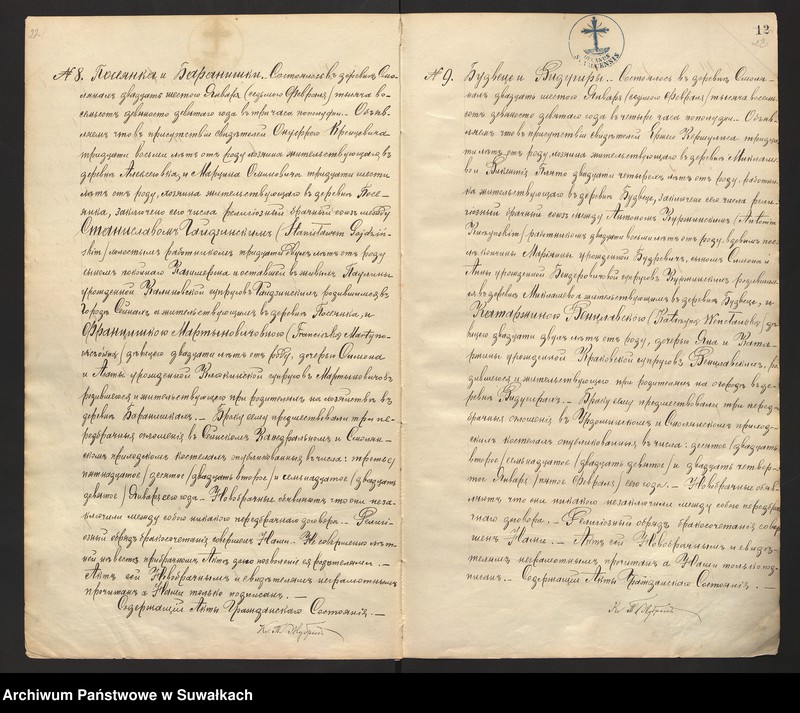 22
№ 8. Посянка и Баранишки. Состоялось въ деревнѣ Смо-
лянахъ двадцать шестого Января (седьмого Февраля) тысяча во-
семьсотъ девяносто девятаго года въ три часа пополудни. Объяв-
ляемъ что въ присутствіи свидѣтелей Онуфрого
тридцати восьми лѣтъ отъ роду хозяина жительствующаго въ
деревнѣ Алексѣевка, и Марцина тридцати шести
лѣтъ отъ роду, хозяина жительствующаго въ деревнѣ Пося-
янка, заключенъ сего числа религіозный брачный союзъ между
Станиславомъ Гайдзинскимъ (Stanisławem Gajdziń-
skim) холостымъ работникомъ тридцати двухъ лѣтъ отъ роду
сыномъ покойнаго Казимержа и оставшей въ живыхъ Паулины
урожденной Калиновской супруговъ Гайдзинскихъ родившимся въ
городѣ жительствующимъ въ деревнѣ Посянка, и
Францишкою Мартыновичовною (Franciszką Martyno-
wiczówną) дѣвицею двадцати лѣтъ отъ роду, дочерью Симона
и Агаты урожденной супруговъ Мартыновичовъ
родившеюся и жительствующею при родителяхъ на хозяйствѣ въ
деревнѣ Баранишкахъ. — Браку сему предшествовали три пе-
редбрачныя оглашенія въ Сейнскомъ Каѳедральномъ и Смолян-
скомъ приходскомъ костелахъ опубликованныя въ числа: третье (
пятнадцатое) десятое (двадцать второе) и семнадцатое (двадцать
девятое) Января сего года. — Новобрачные объявили что они неза-
ключили между собою никакого передбрачнаго договора. — Религі-
озный обрядъ бракосочетанія совершенъ Нами. — Несовершеннолѣт-
ней невѣстѣ при брачномъ Актѣ дано позволеніе ея родителями. —
Актъ сей Новобрачнымъ и свидѣтелямъ неграмотнымъ
прочитанъ а Нами только подписанъ. —
Содержащій Акты Гражданскаго Состоянія. —
12
22
№ 9. Будвець и Видугиры. Состоялось въ деревнѣ Смоля-
нахъ двадцать шестого Января (седьмого Февраля) тысяча восемь-
сотъ девяносто девятаго года въ четыре часа пополудни. — Объяв-
ляемъ что въ присутствіи свидѣтелей тридца-
ти лѣтъ отъ роду, хозяина жительствующаго въ деревнѣ Микалаев-
ки и двадцати четырехъ лѣтъ отъ роду, работни-
ка жительствующаго въ деревнѣ Будвець, заключенъ сего числа рели-
гіозный брачный союзъ между Антономъ Куржинскимъ (Antonim
Kurzyńskim) работникомъ двадцати восьми лѣтъ отъ роду, вдовымъ пос-
лѣ кончины Маріанны урожденной Будревичъ, сыномъ Симона и
Анны урожденной супруговъ Куржинскихъ, родившим-
ся въ деревнѣ Микалаевка жительствующимъ въ деревнѣ Будвець, и
Катаржиною Венцлавскою (Katarzyną Wencławską) дѣ-
вицею двадцати двухъ лѣтъ отъ роду, дочерью Яна и Ката-
ржины урожденной Краковской супруговъ Венцлавскихъ, ро-
дившеюся и жительствующею при родителяхъ на огородѣ въ де-
ревнѣ Видугерахъ. — Браку сему предшествовали три перед-
брачныя оглашенія въ и Смолянскомъ приход-
скихъ костелахъ опубликованныя въ числа: десятое (двадцать
второе) семнадцатое (двадцать девятое) и двадцать четвер-
тое Января (пятое Февраля) сего года. — Новобрачные объяв-
ляютъ что они никакого незаключили между собою передбра-
чнаго договора. — Религіозный обрядъ бракосочетанія совер-
шенъ Нами. — Актъ сей Новобрачнымъ и свидѣ-
телямъ неграмотнымъ прочитанъ а Нами только под-
писанъ. — Содержащій Акты Гражданскаго Состоянія. —
Archiwum Państwowe w Suwałkach